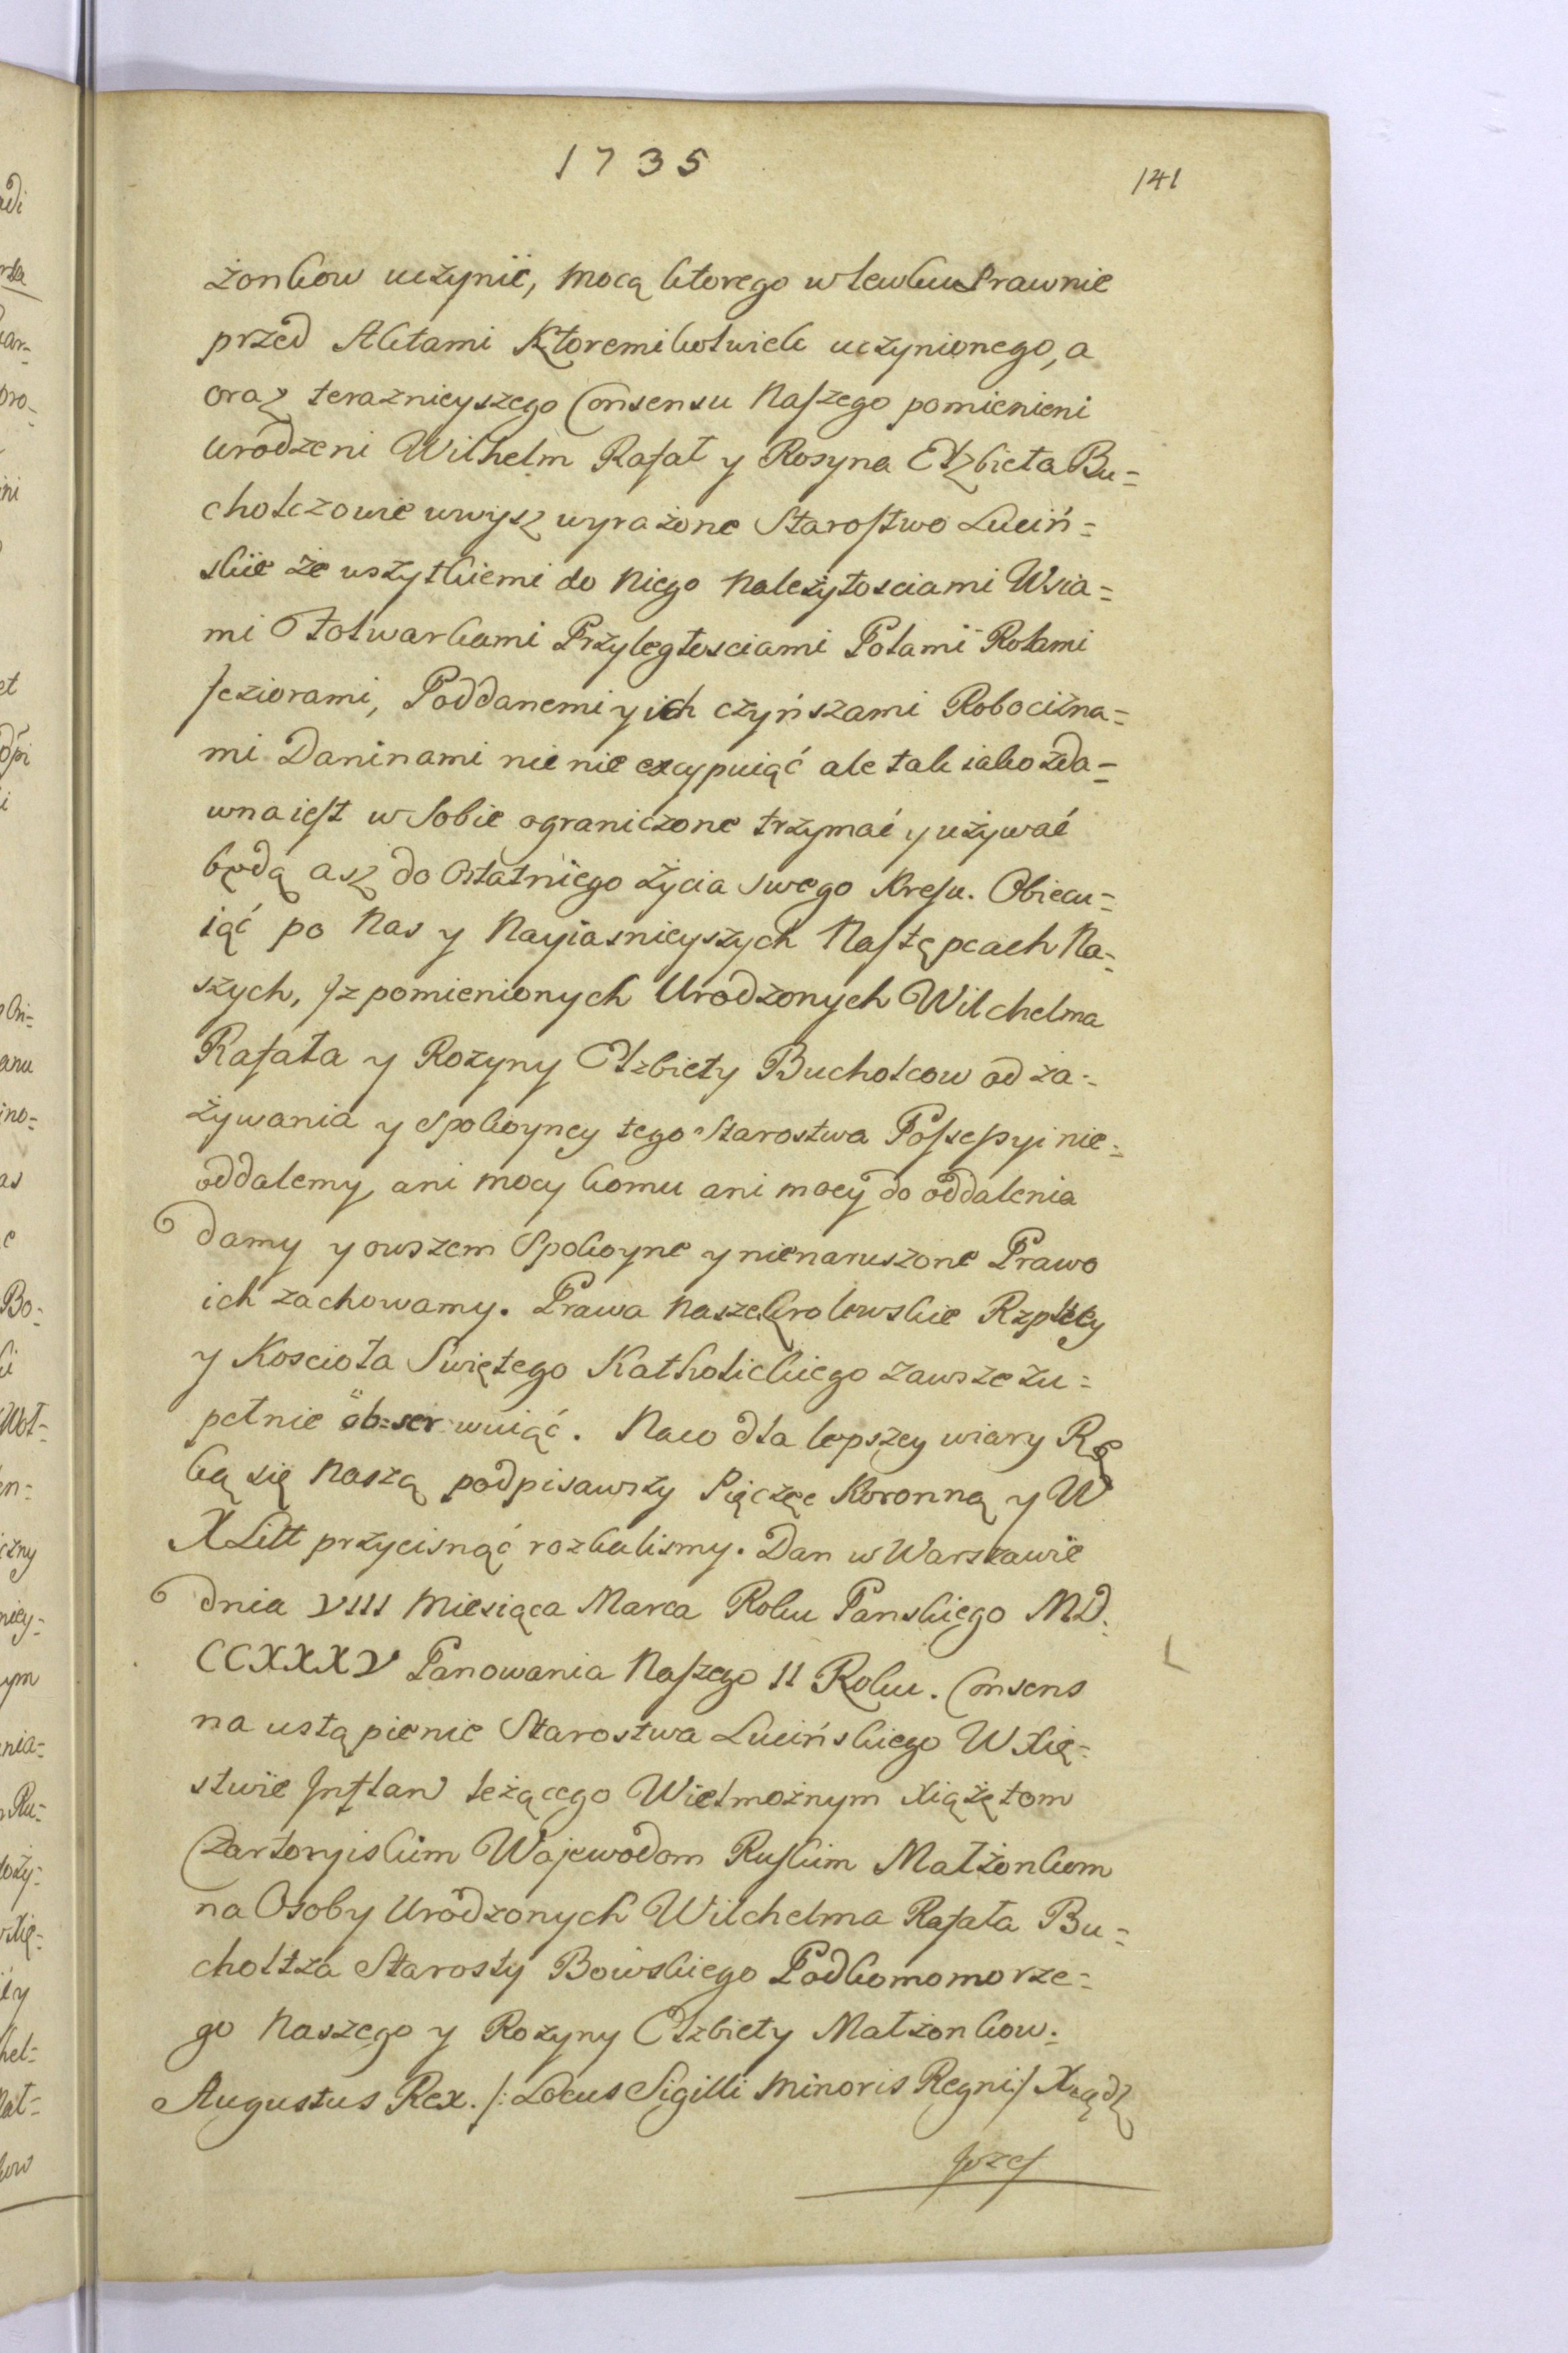 1735
141
żonkow uczynić, mocą ktorego wlewku Prawnie
przed Aktami Ktoremikolwiek uczynionego, a
oraz teraznieyszego Consensu Naszego pomienieni
urodzeni Wilhelm Rafał y Rosyna Elżbieta Bu=
cholczowie wwysz wyrażone Starostwo Luciń=
skie że wszytkiemi do Niego Należytosciami Wsia=
mi Folwarkami Przyległosciami Polami Rolami
Jeziorami, Poddanemi y ich czyńszami Robocizna=
mi Daninami nie nie excypuiąć ale tak iako zda=
wna iest w Sobie ograniczone trzymać y używać
będą asz do Ostatniego życia swego Kresu. Obiecu=
iąć po Nas y Nayiasnieyszych Następcach Na=
szych, Jz pomienionych Urodzonych Wilchelma
Rafała y Rozyny Elzbiety Bucholcow od za=
żywania y Spokoyney tego Starostwa Possessyi nie=
oddalemy, ani mocy komu ani mocy do oddalenia
damy y owszem Spokoyne y nienaruszone Prawo
ich zachowamy. Prawa Nasze Krolewskie Rzpltey
y Koscioła Swiętego Katholickiego zawsze zu=
pełnie ob=serwuiąć. Naco dla lepszey wiary Rę
ką się Naszą podpisawszy Pięczęc Koronną y W
X Litt przycisnąć rozkalismy. Dan w Warszawie
dnia VIII Miesiąca Marca Roku Panskiego MD=
CCXXXV Panowania Naszego II Roku. Consens
na ustąpienie Starostwa Lucińskiego W Xię=
stwie Inflan leżącego Wielmożnym Xiążętom
Czartoryiskim Wojewodom Ruskim Małżonkom
na Osoby Urodzonych Wilchelma Rafała Bu=
choltza Starosty Bowskiego Podkomomorze=
go Naszego y Rozyny Elzbiety Małżonkow.
Augustus Rex. /: Locus Sigilli Minoris Regni:/ Xiądz
Jozef